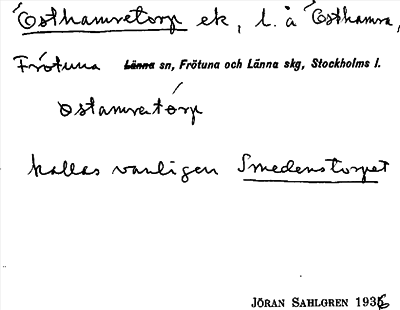 Östhamretorp ek, l. å Östhamra,
Frötuna Länna sn, Frötuna och Länna skg, Stockholms l.
östamratórp
kallas vanligen Smedenstorpet
JÖRAN SAHLGREN 1936